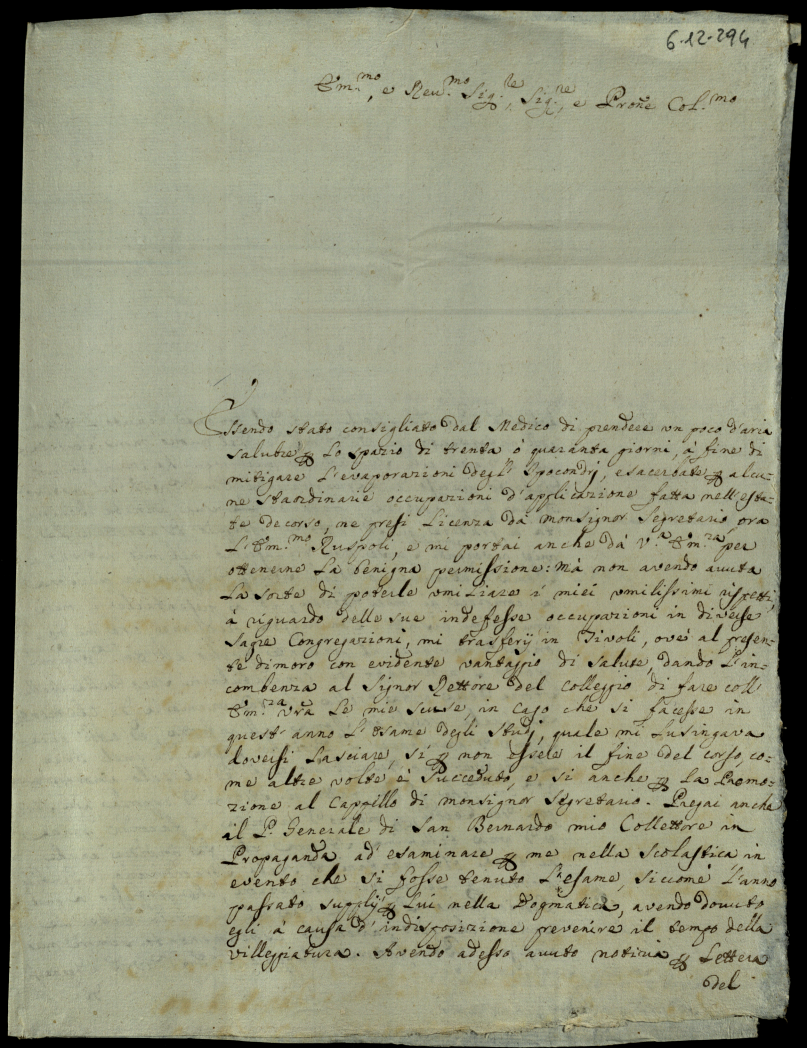 6-12-294
Em.mo, e Reu.mo Sig.re, Sig.re, e Prone Col.mo
Essendo stato consigliato dal Medico di prendere un poco d'aria
salubre p lo spazio di trenta ò quaranta giorni, à fine di
mitigare l'evaporazioni degl'Ipocondrj, esacerbate p alcu-
ne straordinarie occupazioni d'applicazione fatta nell'esta-
te decorso, ne presi licenza dà monsignor Segretario, ora
l'Em.mo Ruspoli, e mi portai anche dà V.a Em.za per
ottenerne la benigna permissione: Mà non avendo avuta
la sorte di poterle umiliare i miei umilissimi rispetti,
à riguardo delle sue indefesse occupazioni in diverse
Sagre Congregazioni, mi trasferij in Tivoli, ove al presen-
te dimoro con evidente vantaggio di salute, dando l'in-
combenza al Signor Rettore del Colleggio di fare coll'
Em.za Vra le mie scuse, in caso che si facesse in
quest'anno l'esame degli studj, quale mi lusingava
doversi lasciare, sì p non essere il fine del corso, co-
me altre volte è succeduto, e si anche p la Promo-
zione al Cappello di monsignor Segretario. Pregai anche
il P. Generale di San Bernardo mio Collettore in
Propaganda ad esaminare p me nella Scolastica in
evento che si fosse tenuto l'esame, siccome l'anno
passato supplij p lui nella Dogmatica, avendo dovuto
egli à causa d'indisposizione prevenire il tempo della
villeggiatura. Avendo adesso avuto notizia p lettera
del